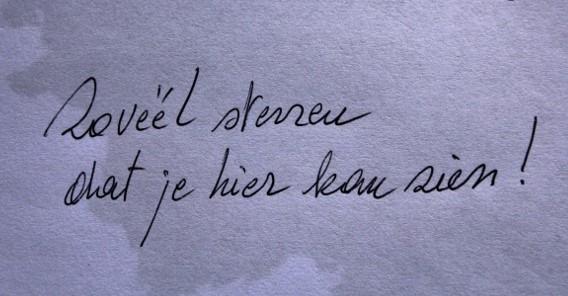 Zovëél sterren
dat je hier kan zien!